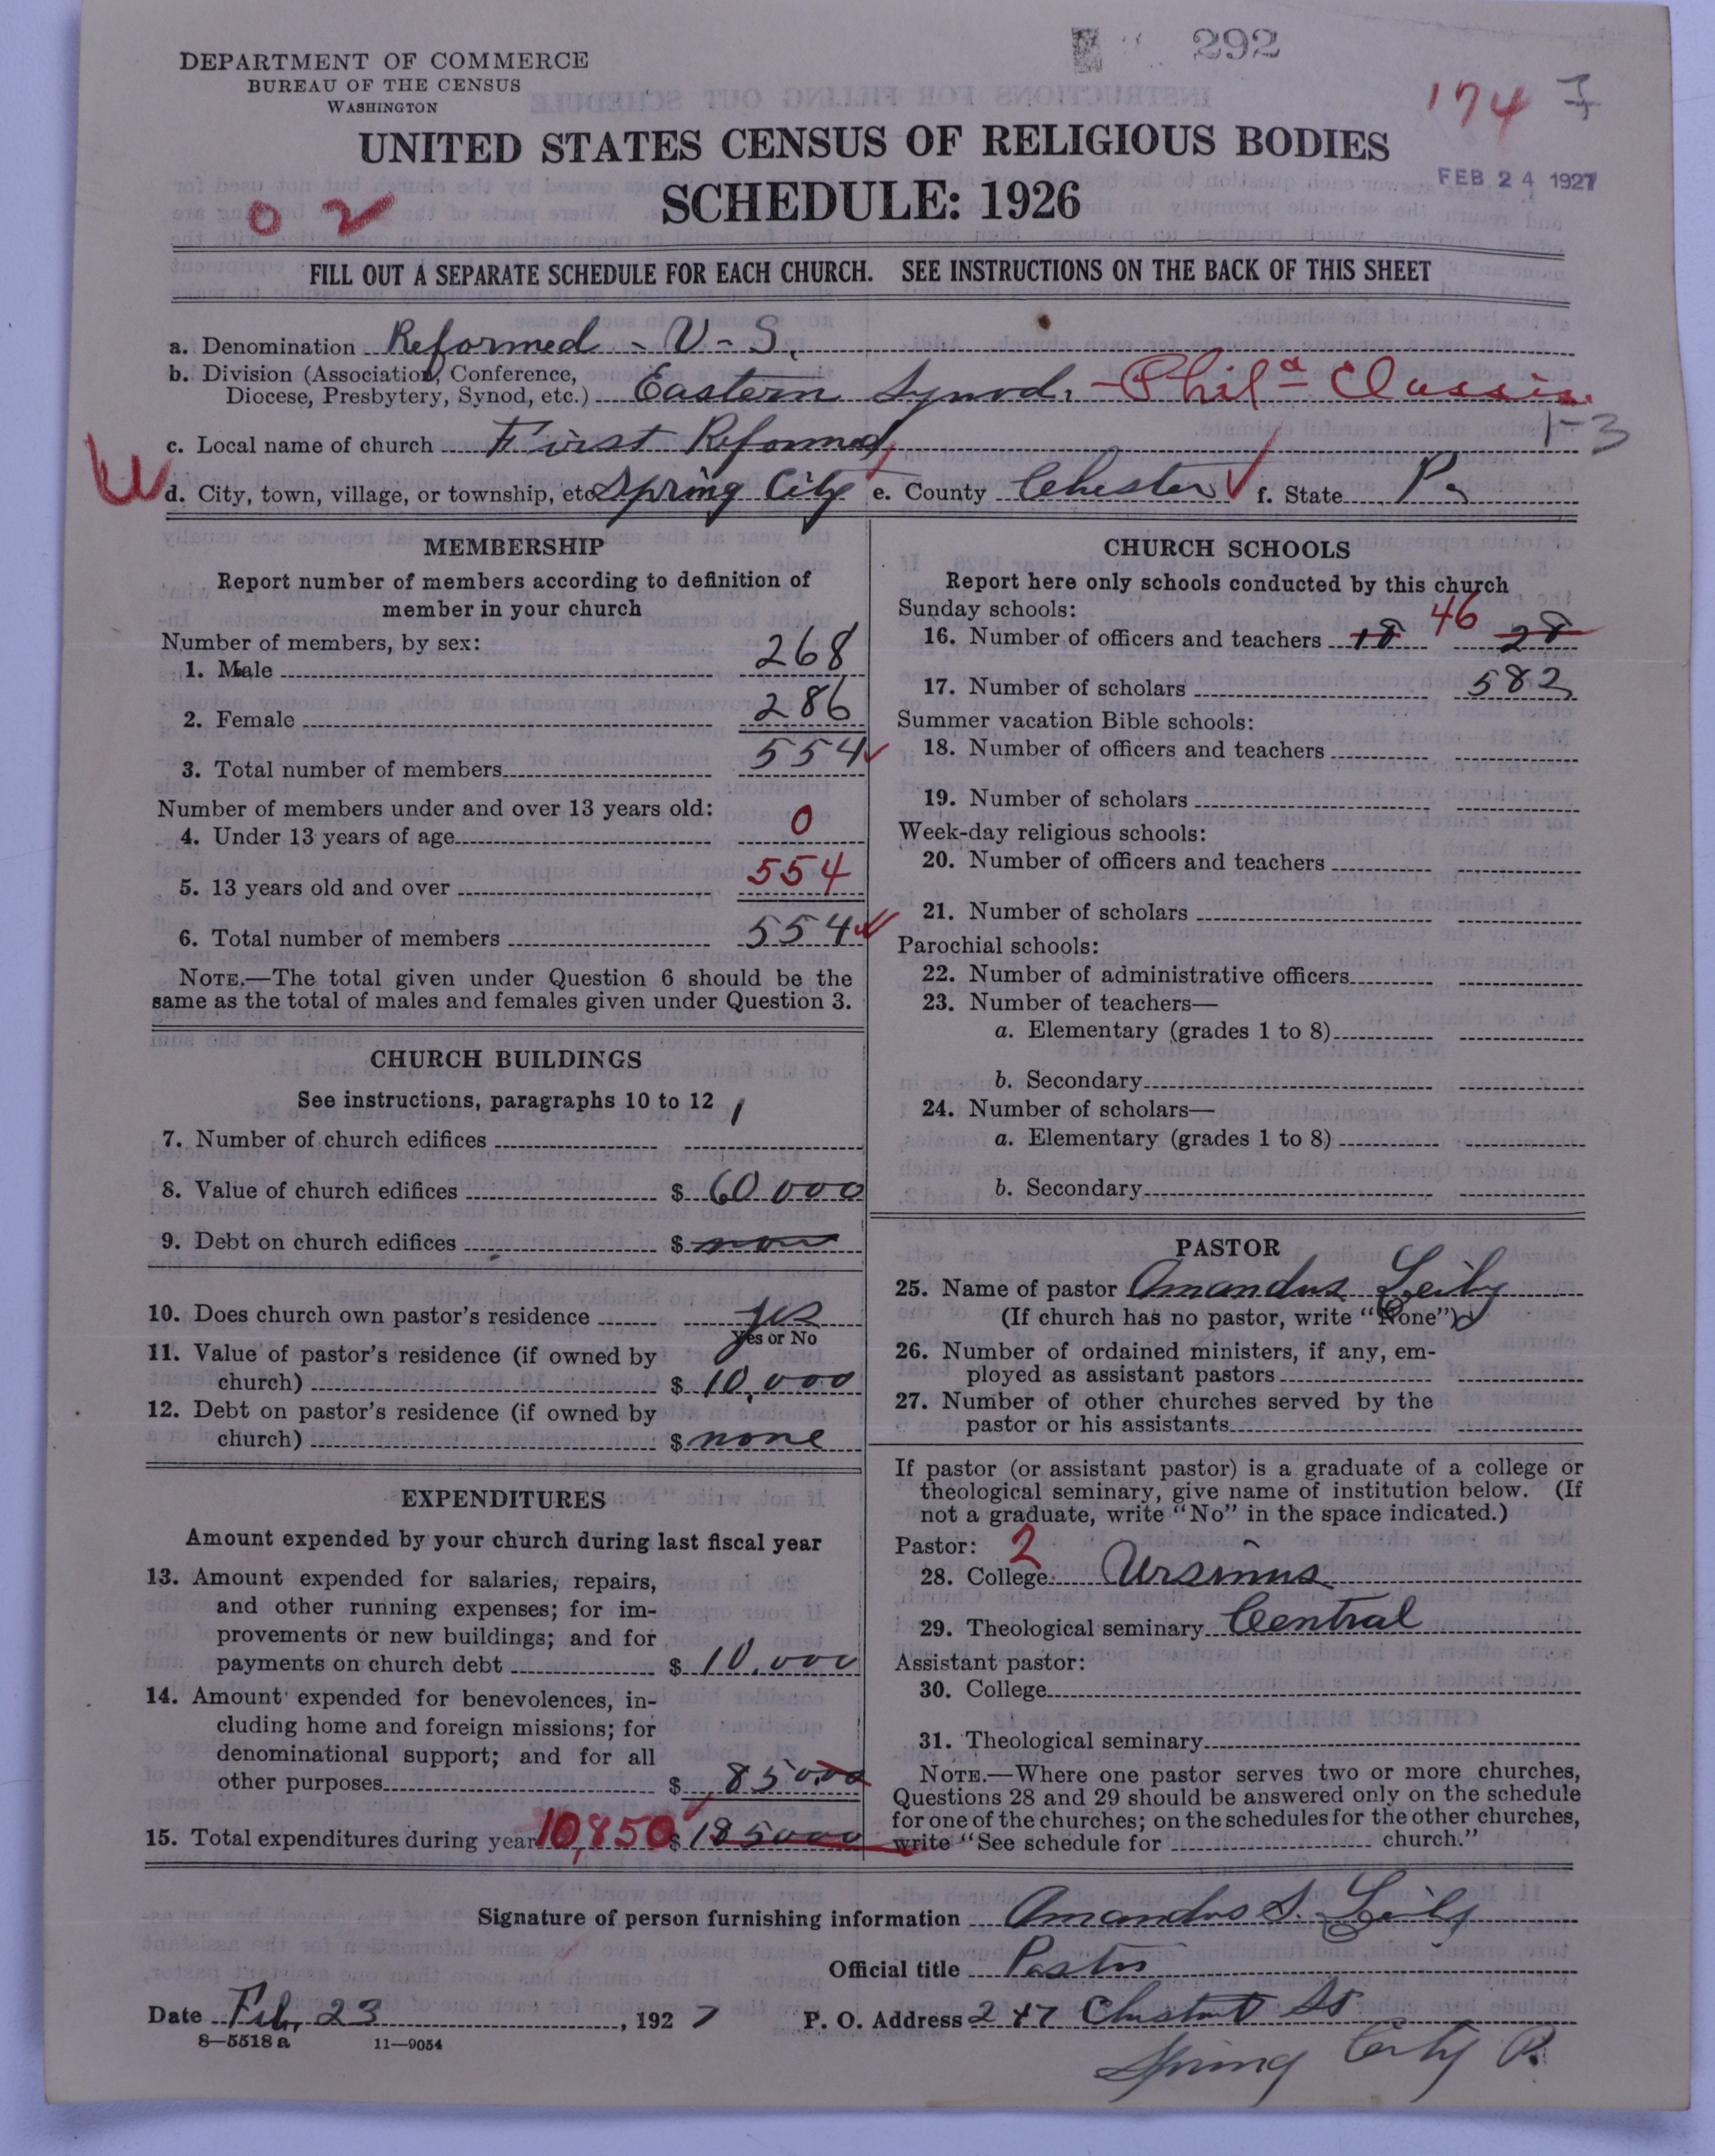 DEPARTMENT OF COMMERCE
BUREAU OF THE CENSUS
WASHINGTON
292
174
UNITED STATES CENSUS OF RELIGIOUS BODIES
SCHEDULE: 1926
FEB 24 1927
0 2
FILL OUT A SEPARATE SCHEDULE FOR EACH CHURCH. SEE INSTRUCTIONS ON THE BACK OF THIS SHEET
a. Denomination Reformed - U - S.
b. Division (Association, Conference, Diocese, Presbytery, Synod, etc.) Eastern Synod. - Phila Classis.
1-3
c. Local name of church First Reformed
d. City, town, village, or township, etc Spring City e. County Chester f. State Pa
MEMBERSHIP
Report number of members according to definition of
member in your church
Number of members, by sex:
1. Male 268
2. Female 286
3. Total number of members 554
Number of members under and over 13 years old:
4. Under 13 years of age 0
5. 13 years old and over 554
6. Total number of members 554
NOTE.—The total given under Question 6 should be the
same as the total of males and females given under Question 3.
CHURCH BUILDINGS
See instructions, paragraphs 10 to 12
7. Number of church edifices 1
8. Value of church edifices $ 60 000
9. Debt on church edifices $ none
10. Does church own pastor's residence yes
Yes or No
11. Value of pastor's residence (if owned by
church) $ 10,000
12. Debt on pastor's residence (if owned by
church) $ none
EXPENDITURES
Amount expended by your church during last fiscal year
13. Amount expended for salaries, repairs,
and other running expenses; for im-
provements or new buildings; and for
payments on church debt $ 10,000
14. Amount expended for benevolences, in-
cluding home and foreign missions; for
denominational support; and for all
other purposes $ 85000
15. Total expenditures during year 10,850 $ 185000
CHURCH SCHOOLS
Report here only schools conducted by this church
Sunday schools:
16. Number of officers and teachers 18 46 28
17. Number of scholars 582
Summer vacation Bible schools:
18. Number of officers and teachers
19. Number of scholars
Week-day religious schools:
20. Number of officers and teachers
21. Number of scholars
Parochial schools:
22. Number of administrative officers
23. Number of teachers—
a. Elementary (grades 1 to 8)
b. Secondary
24. Number of scholars—
a. Elementary (grades 1 to 8)
b. Secondary
PASTOR
25. Name of pastor Amandus Leiby
(If church has no pastor, write "None")
26. Number of ordained ministers, if any, em-
ployed as assistant pastors
27. Number of other churches served by the
pastor or his assistants
If pastor (or assistant pastor) is a graduate of a college or
theological seminary, give name of institution below. (If
not a graduate, write "No" in the space indicated.)
Pastor: 2
28. College Ursinus
29. Theological seminary Central
Assistant pastor:
30. College
31. Theological seminary
NOTE.—Where one pastor serves two or more churches,
Questions 28 and 29 should be answered only on the schedule
for one of the churches; on the schedules for the other churches,
write "See schedule for church."
Signature of person furnishing information Amandus S. Leiby
Official title Pastor
Date Feb. 23, 1927 P. O. Address 247 Chestnut St
8—5518 a 11—9054
Spring City Pa